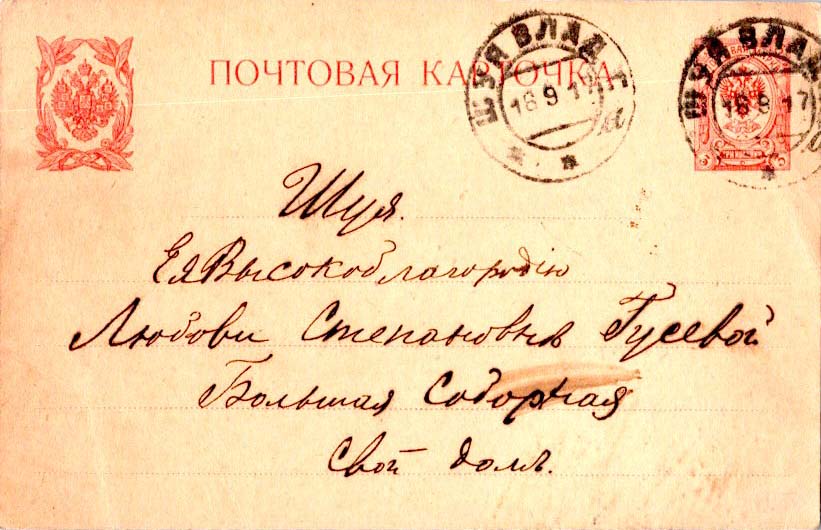 ПОЧТОВАЯ КАРТОЧКА
ШУЯ ВЛАД. Г.
16 9 17
ШУЯ ВЛАД
16 9 17
Шуя.
Ея Высокоблагородію
Любови Степановнѣ Гусевой
Большая Соборная
Свой домъ.